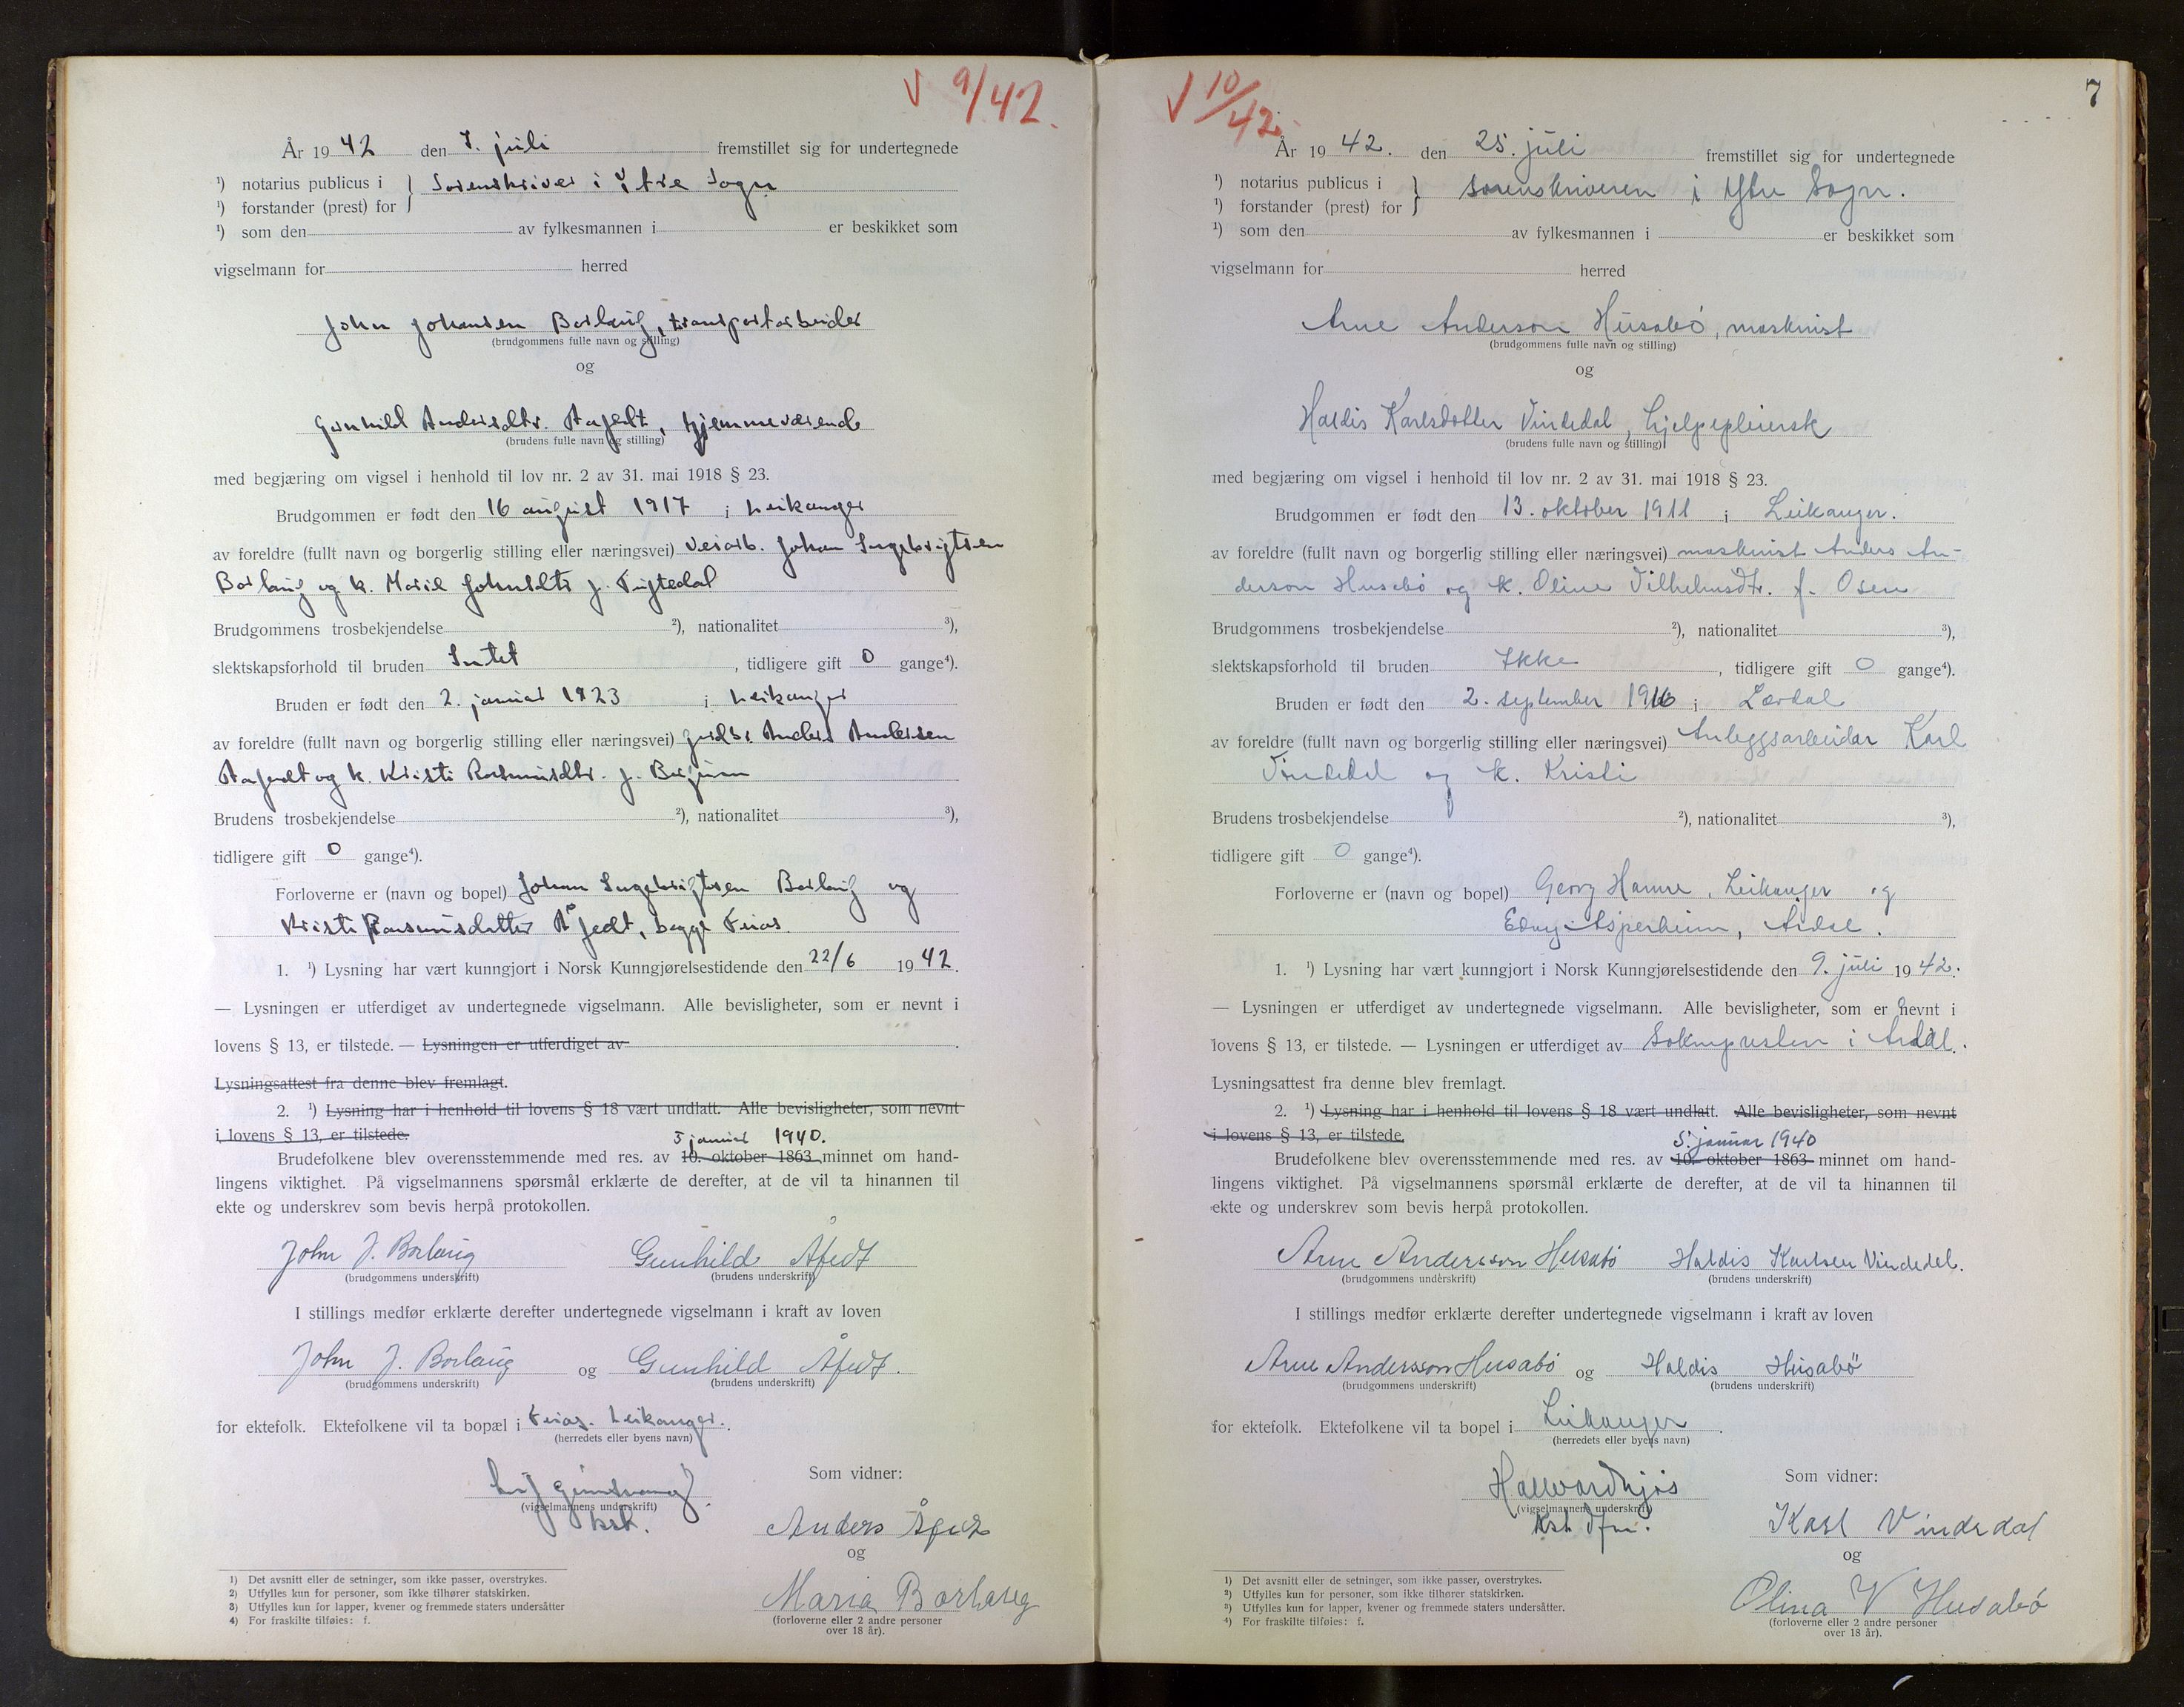 V 9/42.
År 1942 den 7. juli fremstillet sig for undertegnede
¹) notarius publicus i } Sorenskriver i Ytre Sogn
¹) forstander (prest) for
¹) som den av fylkesmannen i er beskikket som
vigselmann for herred
John Johansen Borlaug, transportarbeider
(brudgommens fulle navn og stilling)
og
Gunhild Andersdtr. Aafedt, hjemmeværende
(brudens fulle navn og stilling)
med begjæring om vigsel i henhold til lov nr. 2 av 31. mai 1918 § 23.
Brudgommen er født den 16 august 1917 i Leikanger
av foreldre (fullt navn og borgerlig stilling eller næringsvei) veiarb. Johan Ingebrigtsen
Borlaug og k. Marie Johnsdtr f.
Brudgommens trosbekjendelse ²), nationalitet ³),
slektskapsforhold til bruden Intet, tidligere gift 0 gange⁴).
Bruden er født den 2. januar 1923 i Leikanger
av foreldre (fullt navn og borgerlig stilling eller næringsvei) grdbr. Anders Andersen
Aafedt og k. Kristi Rasmusdtr. f. Bergum
Brudens trosbekjendelse ²), nationalitet ³),
tidligere gift 0 gange⁴).
Forloverne er (navn og bopel) Johan Ingebrigtsen Borlaug og
Kristi Rasmusdatter Åfedt, begge Feios.
1. ¹) Lysning har vært kunngjort i Norsk Kunngjørelsestidende den 22/6 1942.
— Lysningen er utferdiget av undertegnede vigselmann. Alle bevisligheter, som er nevnt i
lovens § 13, er tilstede. — Lysningen er utferdiget av .
Lysningsattest fra denne blev fremlagt.
2. ¹) Lysning har i henhold til lovens § 18 vært undlatt. Alle bevisligheter, som nevnt
i lovens § 13, er tilstede.
5 januar 1940.
Brudefolkene blev overensstemmende med res. av 10. oktober 1863 minnet om hand-
lingens viktighet. På vigselmannens spørsmål erklærte de derefter, at de vil ta hinannen til
ekte og underskrev som bevis herpå protokollen.
John J. Borlaug Gunhild Åfedt
(brudgommens underskrift) (brudens underskrift)
I stillings medfør erklærte derefter undertegnede vigselmann i kraft av loven
John J. Borlaug og Gunhild Åfedt.
(brudgommens underskrift) (brudens underskrift)
for ektefolk. Ektefolkene vil ta bopæl i Feios. Leikanger.
(herredets eller byens navn)
Som vidner:
(vigselmannens underskrift)
kst.
Anders Åfedt
og
Maria Borlaug
(forloverne eller 2 andre personer
over 18 år).
1) Det avsnitt eller de setninger, som ikke passer, overstrykes.
2) Utfylles kun for personer, som ikke tilhører statskirken.
3) Utfylles kun for lapper, kvener og fremmede staters undersåtter
4) For fraskilte tilføies: f.
V 10/42.
7
År 1942. den 25. juli fremstillet sig for undertegnede
¹) notarius publicus i } sorenskriveren i Ytre Sogn.
¹) forstander (prest) for
¹) som den av fylkesmannen i er beskikket som
vigselmann for herred
Arne Anderson Husabø, maskinist
(brudgommens fulle navn og stilling)
og
Haldis Karlsdotter Vindedal, hjelpepleiersk
(brudens fulle navn og stilling)
med begjæring om vigsel i henhold til lov nr. 2 av 31. mai 1918 § 23.
Brudgommen er født den 13. oktober 1911 i Leikanger.
av foreldre (fullt navn og borgerlig stilling eller næringsvei) maskinist Anders An-
derson Husebø og k. Oline Vilhelmsdtr. f. Osen
Brudgommens trosbekjendelse ²), nationalitet ³),
slektskapsforhold til bruden Ikke, tidligere gift 0 gange⁴).
Bruden er født den 2. september 1916 i Lærdal
av foreldre (fullt navn og borgerlig stilling eller næringsvei) Anleggsarbeidar Karl
Vindedal og k. Kristi
Brudens trosbekjendelse ²), nationalitet ³),
tidligere gift 0 gange⁴).
Forloverne er (navn og bopel) Georg Hamre, Leikanger og
Edvy Asperheim, Årdal.
1. ¹) Lysning har vært kunngjort i Norsk Kunngjørelsestidende den 9. juli 1942.
— Lysningen er utferdiget av undertegnede vigselmann. Alle bevisligheter, som er nevnt i
lovens § 13, er tilstede. — Lysningen er utferdiget av Soknepresten i Årdal.
Lysningsattest fra denne blev fremlagt.
2. ¹) Lysning har i henhold til lovens § 18 vært undlatt. Alle bevisligheter, som nevnt
i lovens § 13, er tilstede.
5. januar 1940
Brudefolkene blev overensstemmende med res. av 10. oktober 1863 minnet om hand-
lingens viktighet. På vigselmannens spørsmål erklærte de derefter, at de vil ta hinannen til
ekte og underskrev som bevis herpå protokollen.
Arne Andersson Husabø Haldis Karlsen Vindedal.
(brudgommens underskrift) (brudens underskrift)
I stillings medfør erklærte derefter undertegnede vigselmann i kraft av loven
Arne Andersson Husabø og Haldis Husabø
(brudgommens underskrift) (brudens underskrift)
for ektefolk. Ektefolkene vil ta bopel i Leikanger.
(herredets eller byens navn)
Som vidner:
(vigselmannens underskrift)
kst. dfm.
Karl Vindedal
og
Olina V Husabø
(forloverne eller 2 andre personer
over 18 år).
1) Det avsnitt eller de setninger, som ikke passer, overstrykes.
2) Utfylles kun for personer, som ikke tilhører statskirken.
3) Utfylles kun for lapper, kvener og fremmede staters undersåtter.
4) For fraskilte tilføies: f.